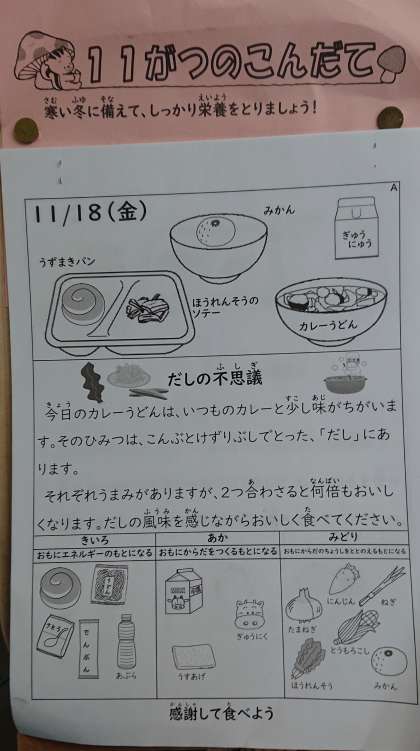 11がつのこんだて
寒い冬に備えて、しっかり栄養をとりましょう!
A
11/18(金)
みかん
ぎゅう
にゅう
うずまきパン
ほうれんそうの
ソテー
カレーうどん
だしの不思議
今日のカレーうどんは、いつものカレーと少し味がちがいま
す。そのひみつは、こんぶとけずりぶしでとった、「だし」にあ
ります。
それぞれうまみがありますが、2つ合わさると何倍もおいし
くなります。だしの風味を感じながらおいしく食べてください。
きいろ
おもにエネルギーのもとになる
あか
おもにからだをつくるもとになる
みどり
おもにからだのちょうしをととのえるもとになる
うどん
さとう
でんぷん
あぶら
ぎゅうにく
うすあげ
にんじん
ねぎ
たまねぎ
とうもろこし
ほうれんそう
みかん
感謝して食べよう